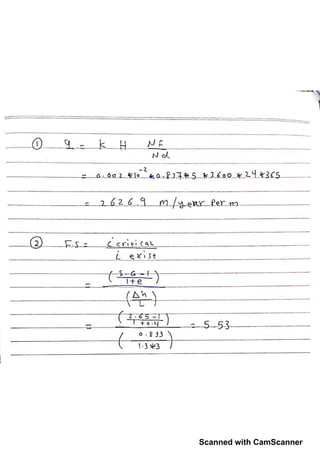 ① q = k H NF / Nd
= 0.002 *10^-2 *0.837*5 *3600 *24*365
= 2626.9 m/year Per m
② F.S = i critical / i exist
= (S.G-1 / 1+e) / (Δh / L)
= (2.65-1 / 1+0.4) / (0.833 / 1.3*3) = 5.53
Scanned with CamScanner